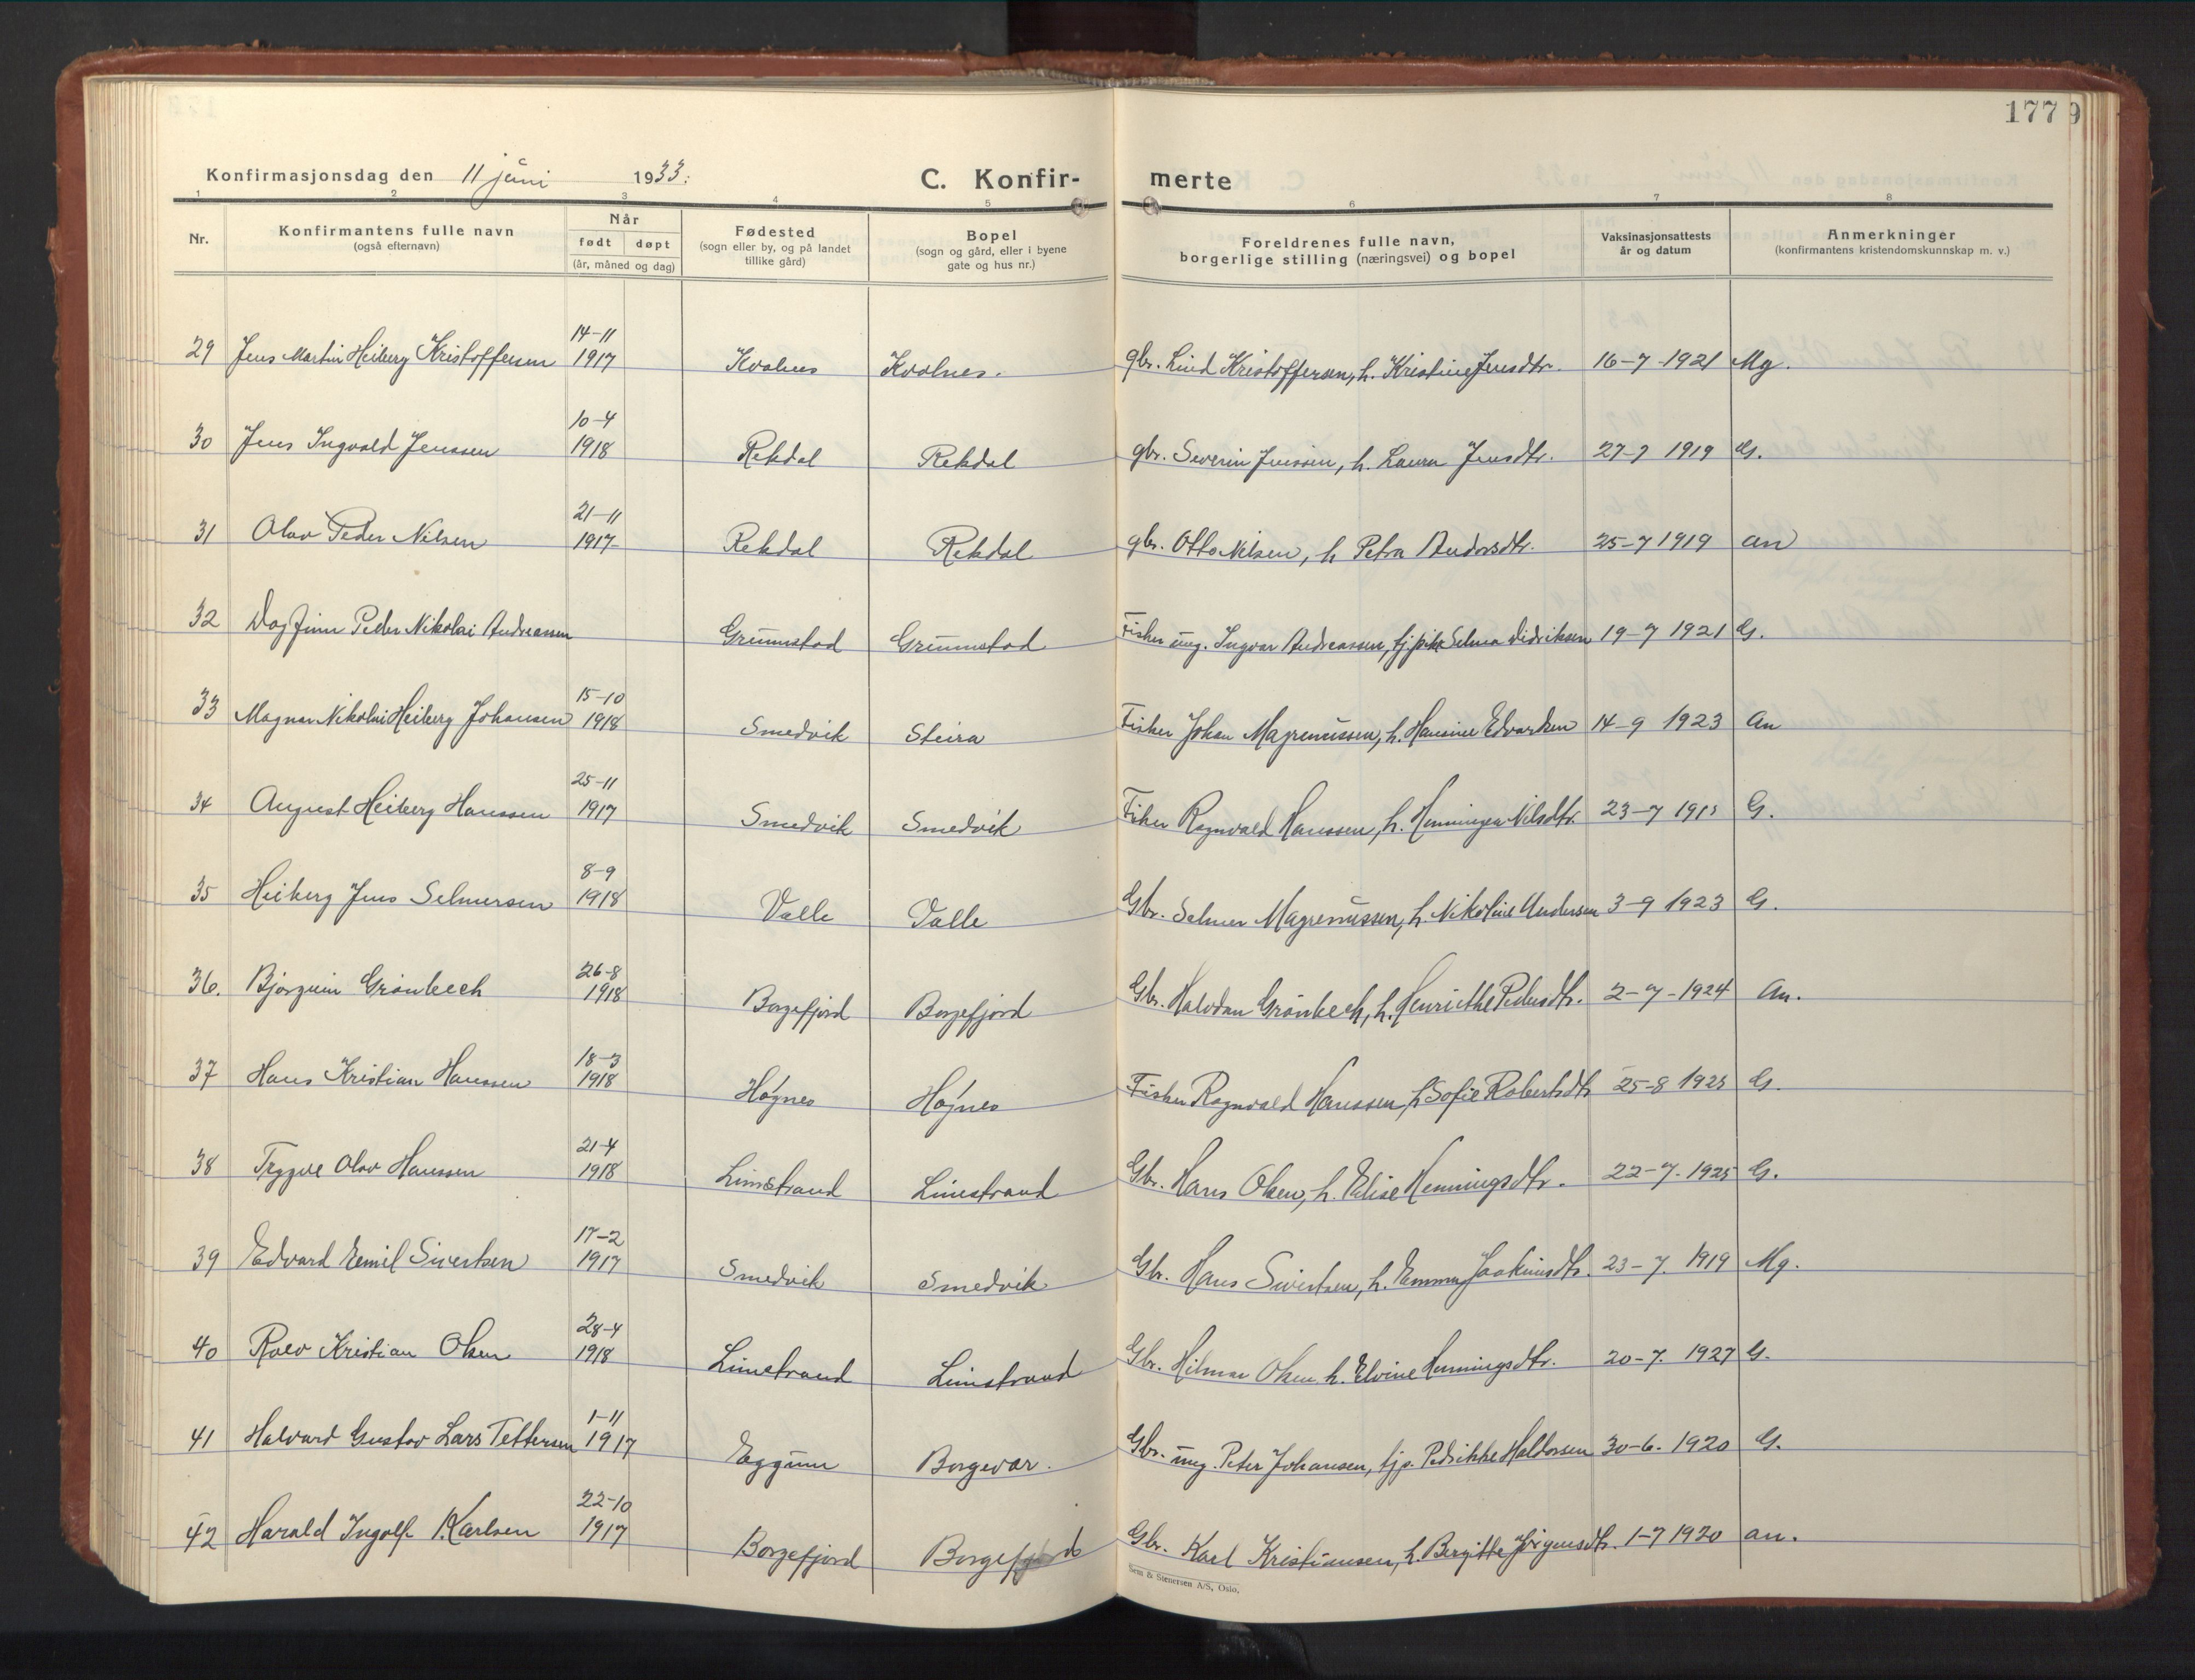 177 9
Konfirmasjonsdag den 11 juni 1933. C. Konfir- merte
1 2 3 4 5 6 7 8
Nr. Konfirmantens fulle navn (også efternavn) Når født døpt (år, måned og dag) Fødested (sogn eller by, og på landet tillike gård) Bopel (sogn og gård, eller i byene gate og hus nr.) Foreldrenes fulle navn, borgerlige stilling (næringsvei) og bopel Vaksinasjonsattests år og datum Anmerkninger (konfirmantens kristendomskunnskap m. v.)
29 Jens Martin Heiberg Kristoffersen 14-11 1917 Kvalnes Kvalnes. gbr. Lind Kristoffersen, h. Kristine Jensdtr. 16-7-1921 Mg.
30 Jens Ingvald Jenssen 10-4 1918 Rekdal Rekdal gbr. Severin Jenssen, h. Laura Jensdtr. 27-7 1919 G.
31 Olav Peder Nilsen 21-11 1917 Rekdal Rekdal gbr. Otto Nilsen, h Petra Andorsdtr. 25-7 1919 an
32 Dagfinn Peder Nikolai Andreassen Grimmstad Grimmstad Fisker ung. Ingvar Andreassen, tj. pike Selma Didriksen 19-7 1921 G.
33 Magnar Nikolai Heiberg Johansen 15-10 1918 Smedvik Steira Fisker Johan Magrenussen, h. Hansine Edvardsen 14-9 1923 An
34 August Heiberg Hanssen 25-11 1917 Smedvik Smedvik Fisker Ragnvald Hanssen, h. Henningea Nilsdtr. 23-7 G.
35 Heiberg Jens Selmersen 8-9 1918 Valle Valle Gbr. Selmer Magrenussen, h. Nikoline Andersen 3-9 1923 G.
36. Bjørgvin Grønbech 26-8 1918 Borgefjord Borgefjord Gbr. Halvdan Grønbech, h. Henriethe Pedersdtr. 2-7-1924 An.
37 Hans Kristian Hanssen 18-3 1918 Høynes Høynes Fisker Ragnvald Hanssen, h Sofie Robertsdtr 25-8 1925 G.
38 Trygve Olav Hanssen 21-4 1918 Limstrand Limstrand Gbr. Hans Olsen, h. Elise Henningsdtr. 22-7-1925 G.
39 Edvard Emil Sivertsen 17-2 1917 Smedvik Smedvik Gbr. Hans Sivertsen, h. Emma Joakimsdtr. 23-7. 1919 Mg.
40 Rolv Kristian Olsen 28-4 1918 Limstrand Limstrand Gbr. Hilmar Olsen h. Elvine Henningsdtr. 20-7. 1927 G.
41 Halvard Gustav Lars Tettersen 1-11 1917 Eggum Borgevar. Gbr. ung. Peter Johansen, tjp. Pedrikke Haldorsen 30-6. 1920 G.
42 Harald Ingolf Karlsen 22-10 1917 Borgefjord Borgefjord Gbr. Karl Kristiansen, h. Bergitte Jørgensdtr. 1-7 1920 an.
Sem & Stenersen A/S, Oslo.